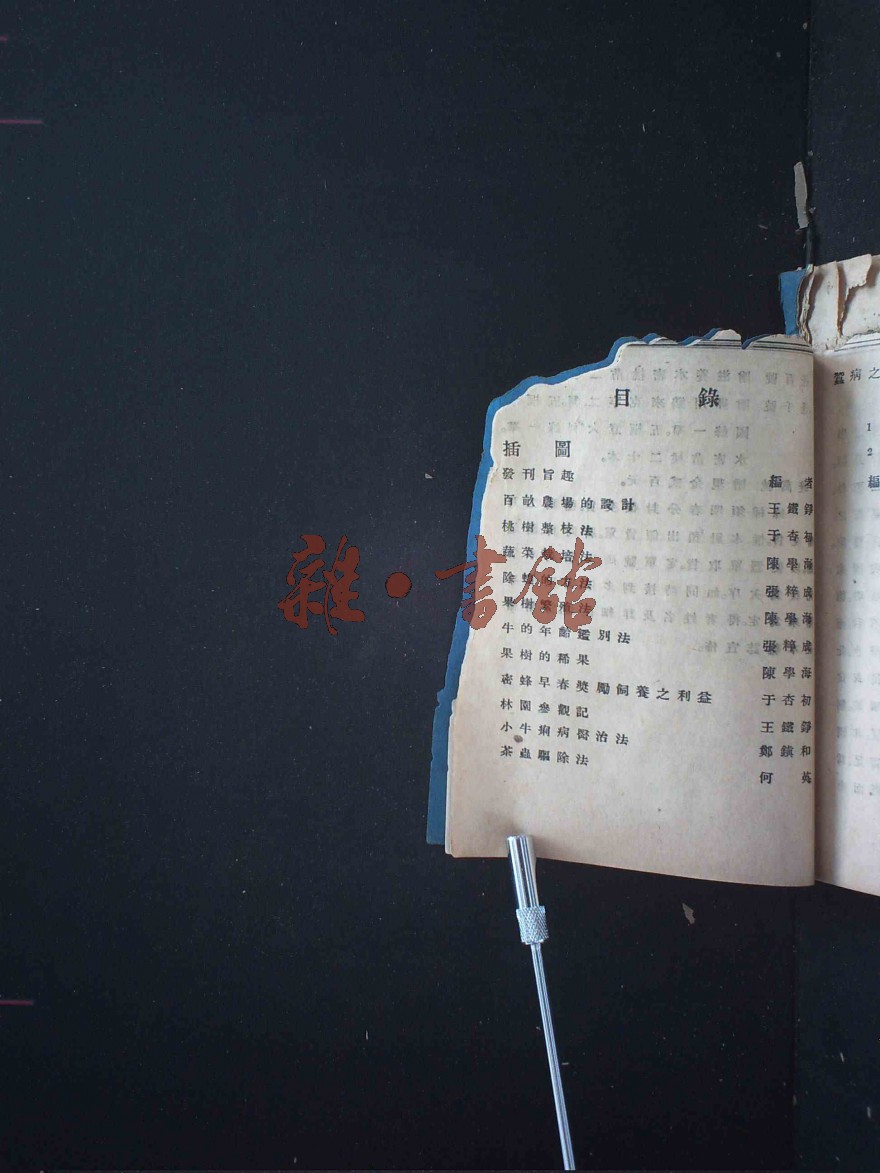 目錄
插圖
發刊旨趣 編者
百畝農場的設計 王鐵錚
桃樹整枝法 于杏初
蔬菜栽培法 陳學海
除的方法 張粹成
果樹繁殖法 陳學海
牛的年齡鑑別法 張粹成
果樹的稀果 陳學海
密蜂早春獎勵飼養之利益 于杏初
林園參觀記 王鐵錚
小牛痢病醫治法 鄭鎮和
茶蟲驅除法 何
蠶病之
1
2
編
雜·書館